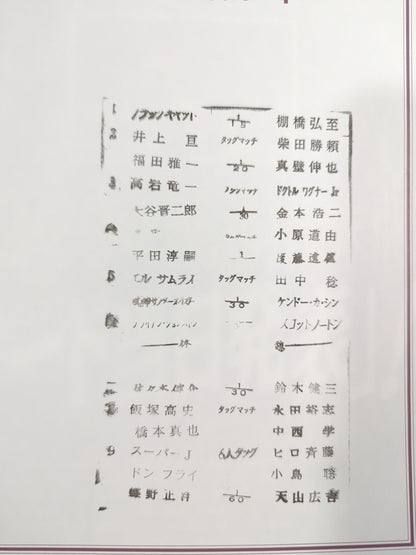 1 1/15 棚橋弘至
2 井上亘 タッグマッチ 柴田勝頼
福田雅一 1/20 真壁伸也
3 高岩竜一 タッグマッチ ドクトルワグナーJr
大谷晋二郎 1/30 金本浩二
小原道由
平田淳嗣 1 後藤達俊
5 エル サムライ タッグマッチ 田中稔
1/30 ケンドー・カ・シン
スコットノートン
休 憩
佐々木健介 1/30 鈴木健三
飯塚高史 タッグマッチ 永田裕志
橋本真也 中西学
9 スーパーJ 6人タッグ ヒロ斉藤
ドン フライ 小島聡
蝶野正洋 1/60 天山広吉